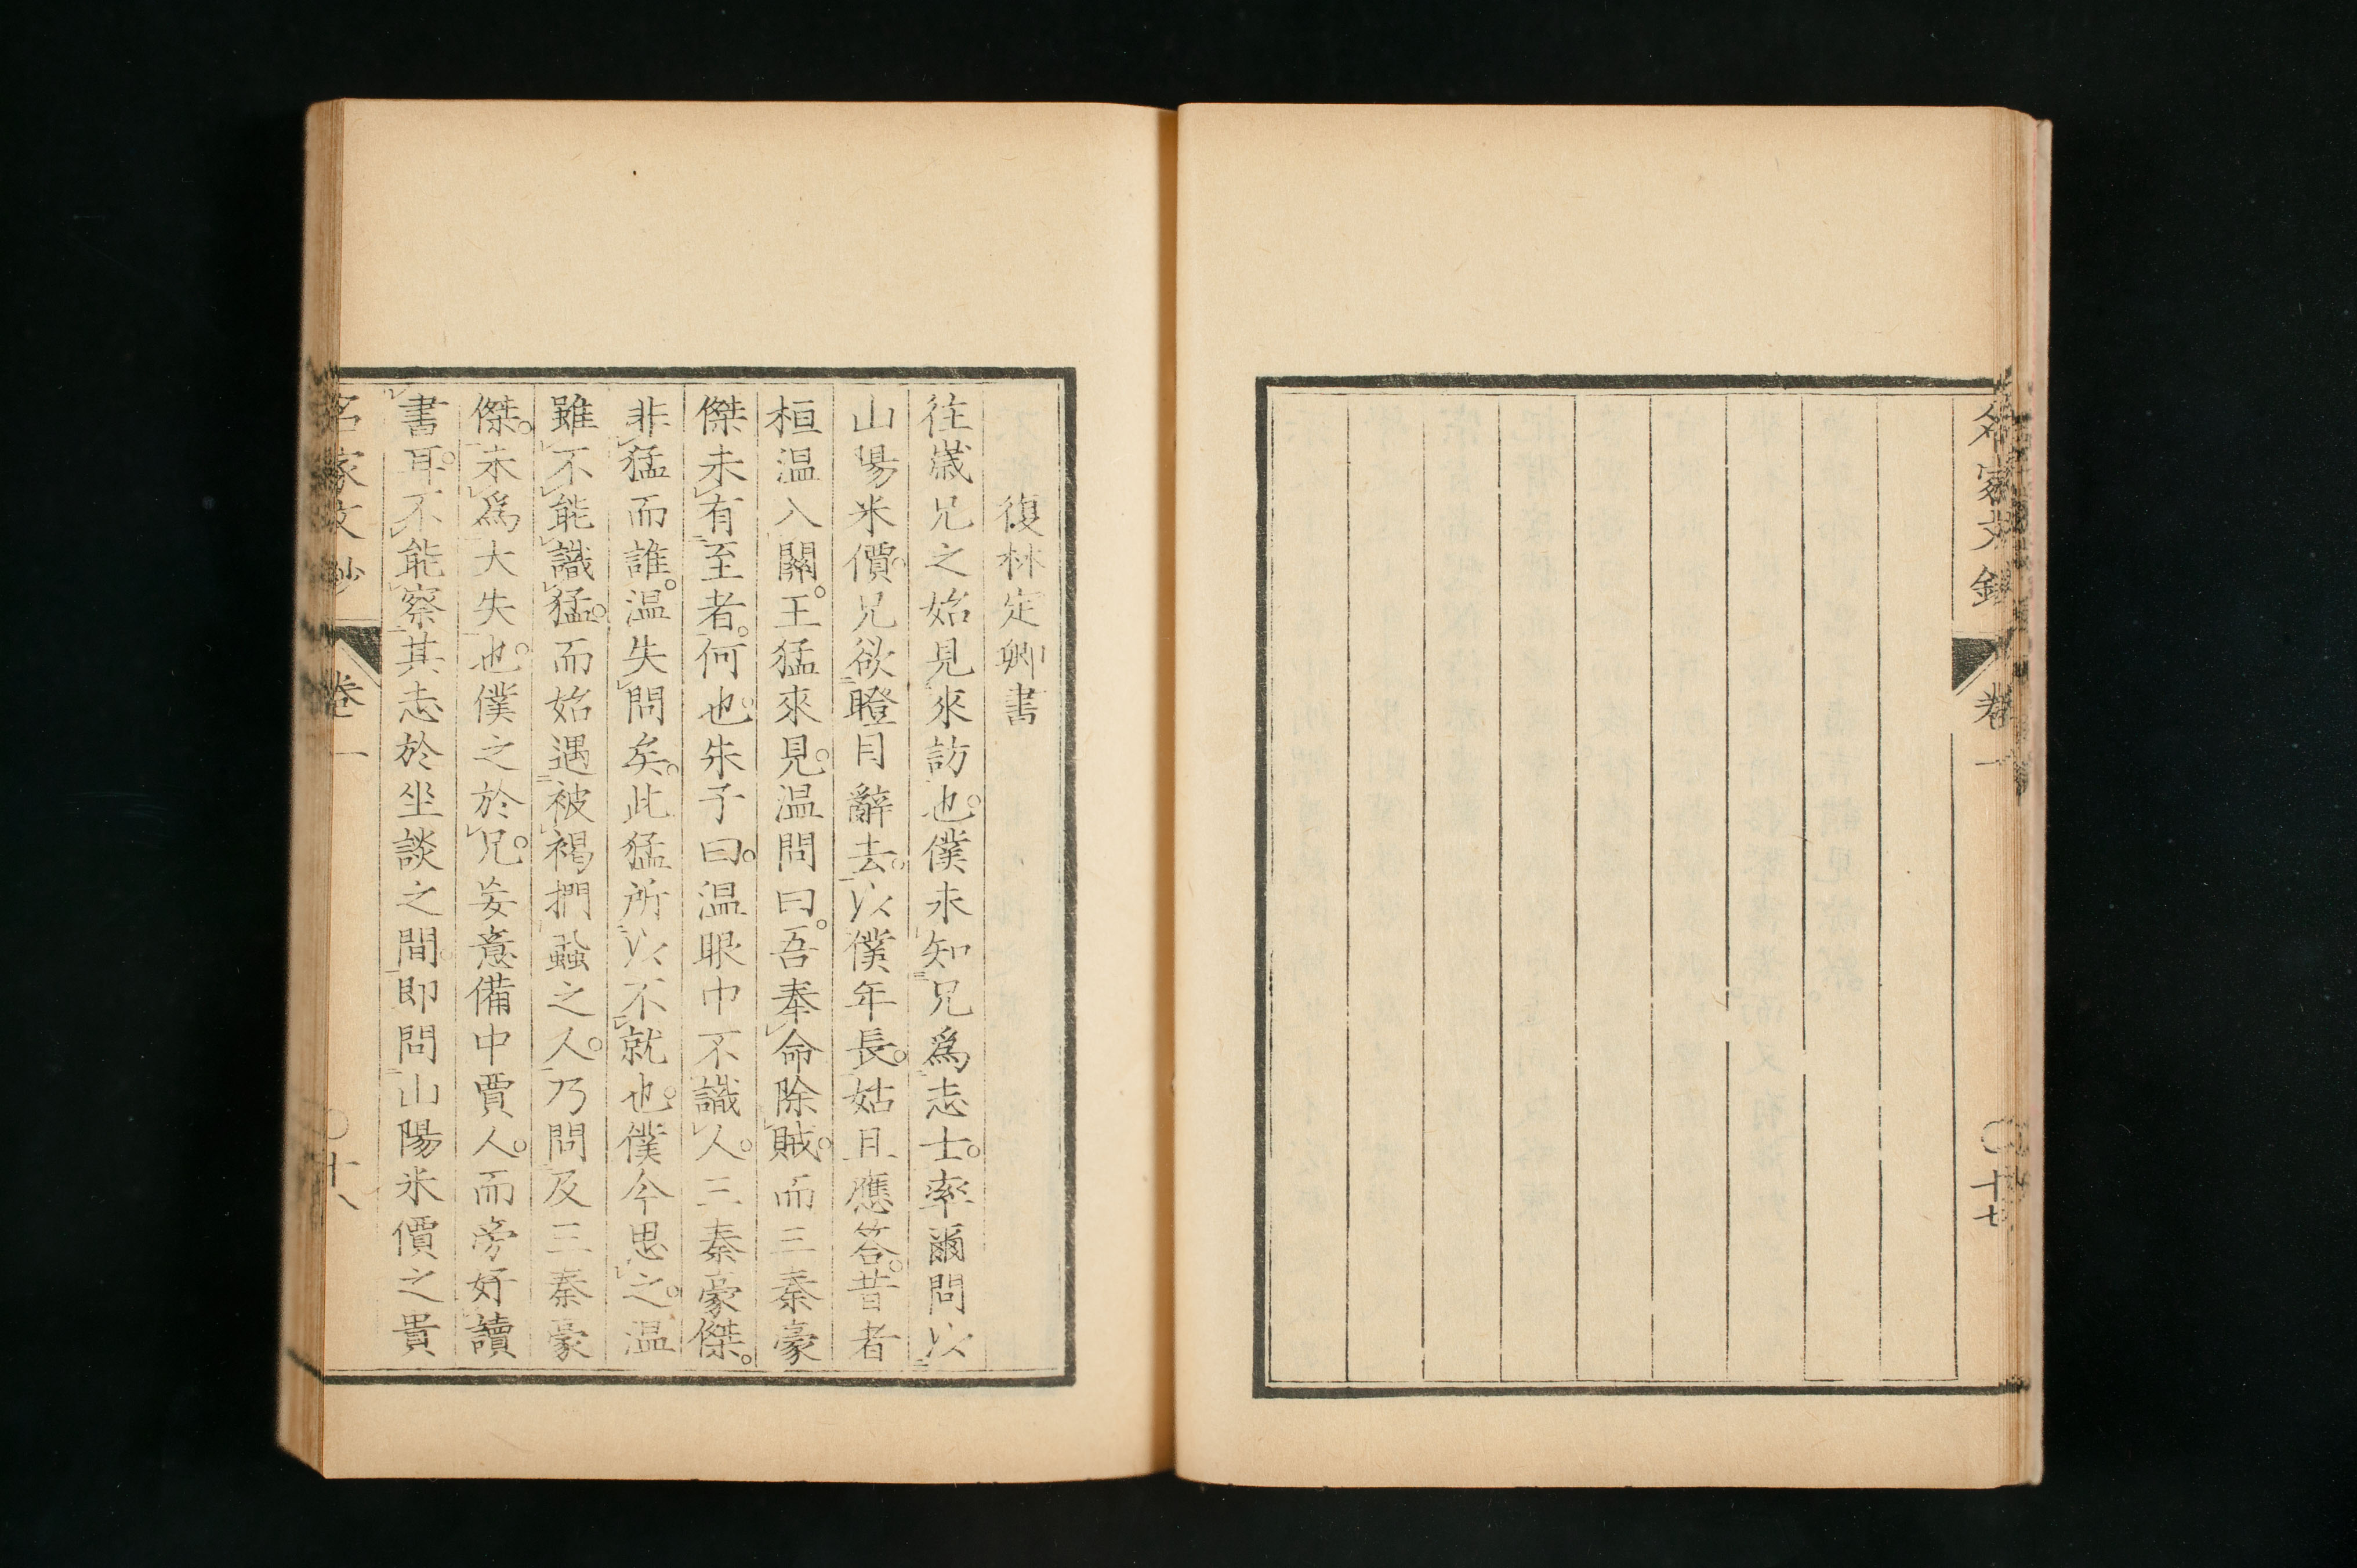 名家文鈔 卷一 ○十七
復林定卿書
往歲兄之始見來訪也。僕未知兄爲志士。率爾問以
山陽米價。兄欲瞪目辭去。以僕年長。姑且應答。昔者
桓温入關。王猛來見。温問曰。吾奉命除賊。而三秦豪
傑未有至者。何也。朱子曰。温眼中不識人。三秦豪傑。
非猛而誰。温失問矣。此猛所以不就也。僕今思之。温
雖不能識猛。而始遇被褐捫蝨之人。乃問及三秦豪
傑。未爲大失也。僕之於兄。妄意備中賈人。而旁好讀
書耳。不能察其志於坐談之間。即問山陽米價之貴
名家文鈔 卷一 ○十八